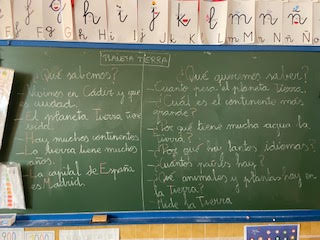 F f G g H h I i J j K k L l M m N n Ñ ñ
PLANETA TIERRA
¿Qué sabemos?
- Vivimos en Cádiz y que
es ciudad.
- El planeta Tierra tiene
vida.
- Hay muchos continentes
- La tierra tiene muchos
años.
- La capital de España
es Madrid.
¿Qué queremos saber?
- Cuanto pesa el planeta Tierra.
- ¿Cuál es el continente más
grande?
- ¿Por qué tiene mucha agua la
Tierra?
- ¿Por qué hay tantos idiomas?
- ¿Cuántos países hay?
- ¿Qué animales y plantas hay en
la Tierra?
- Mide la Tierra